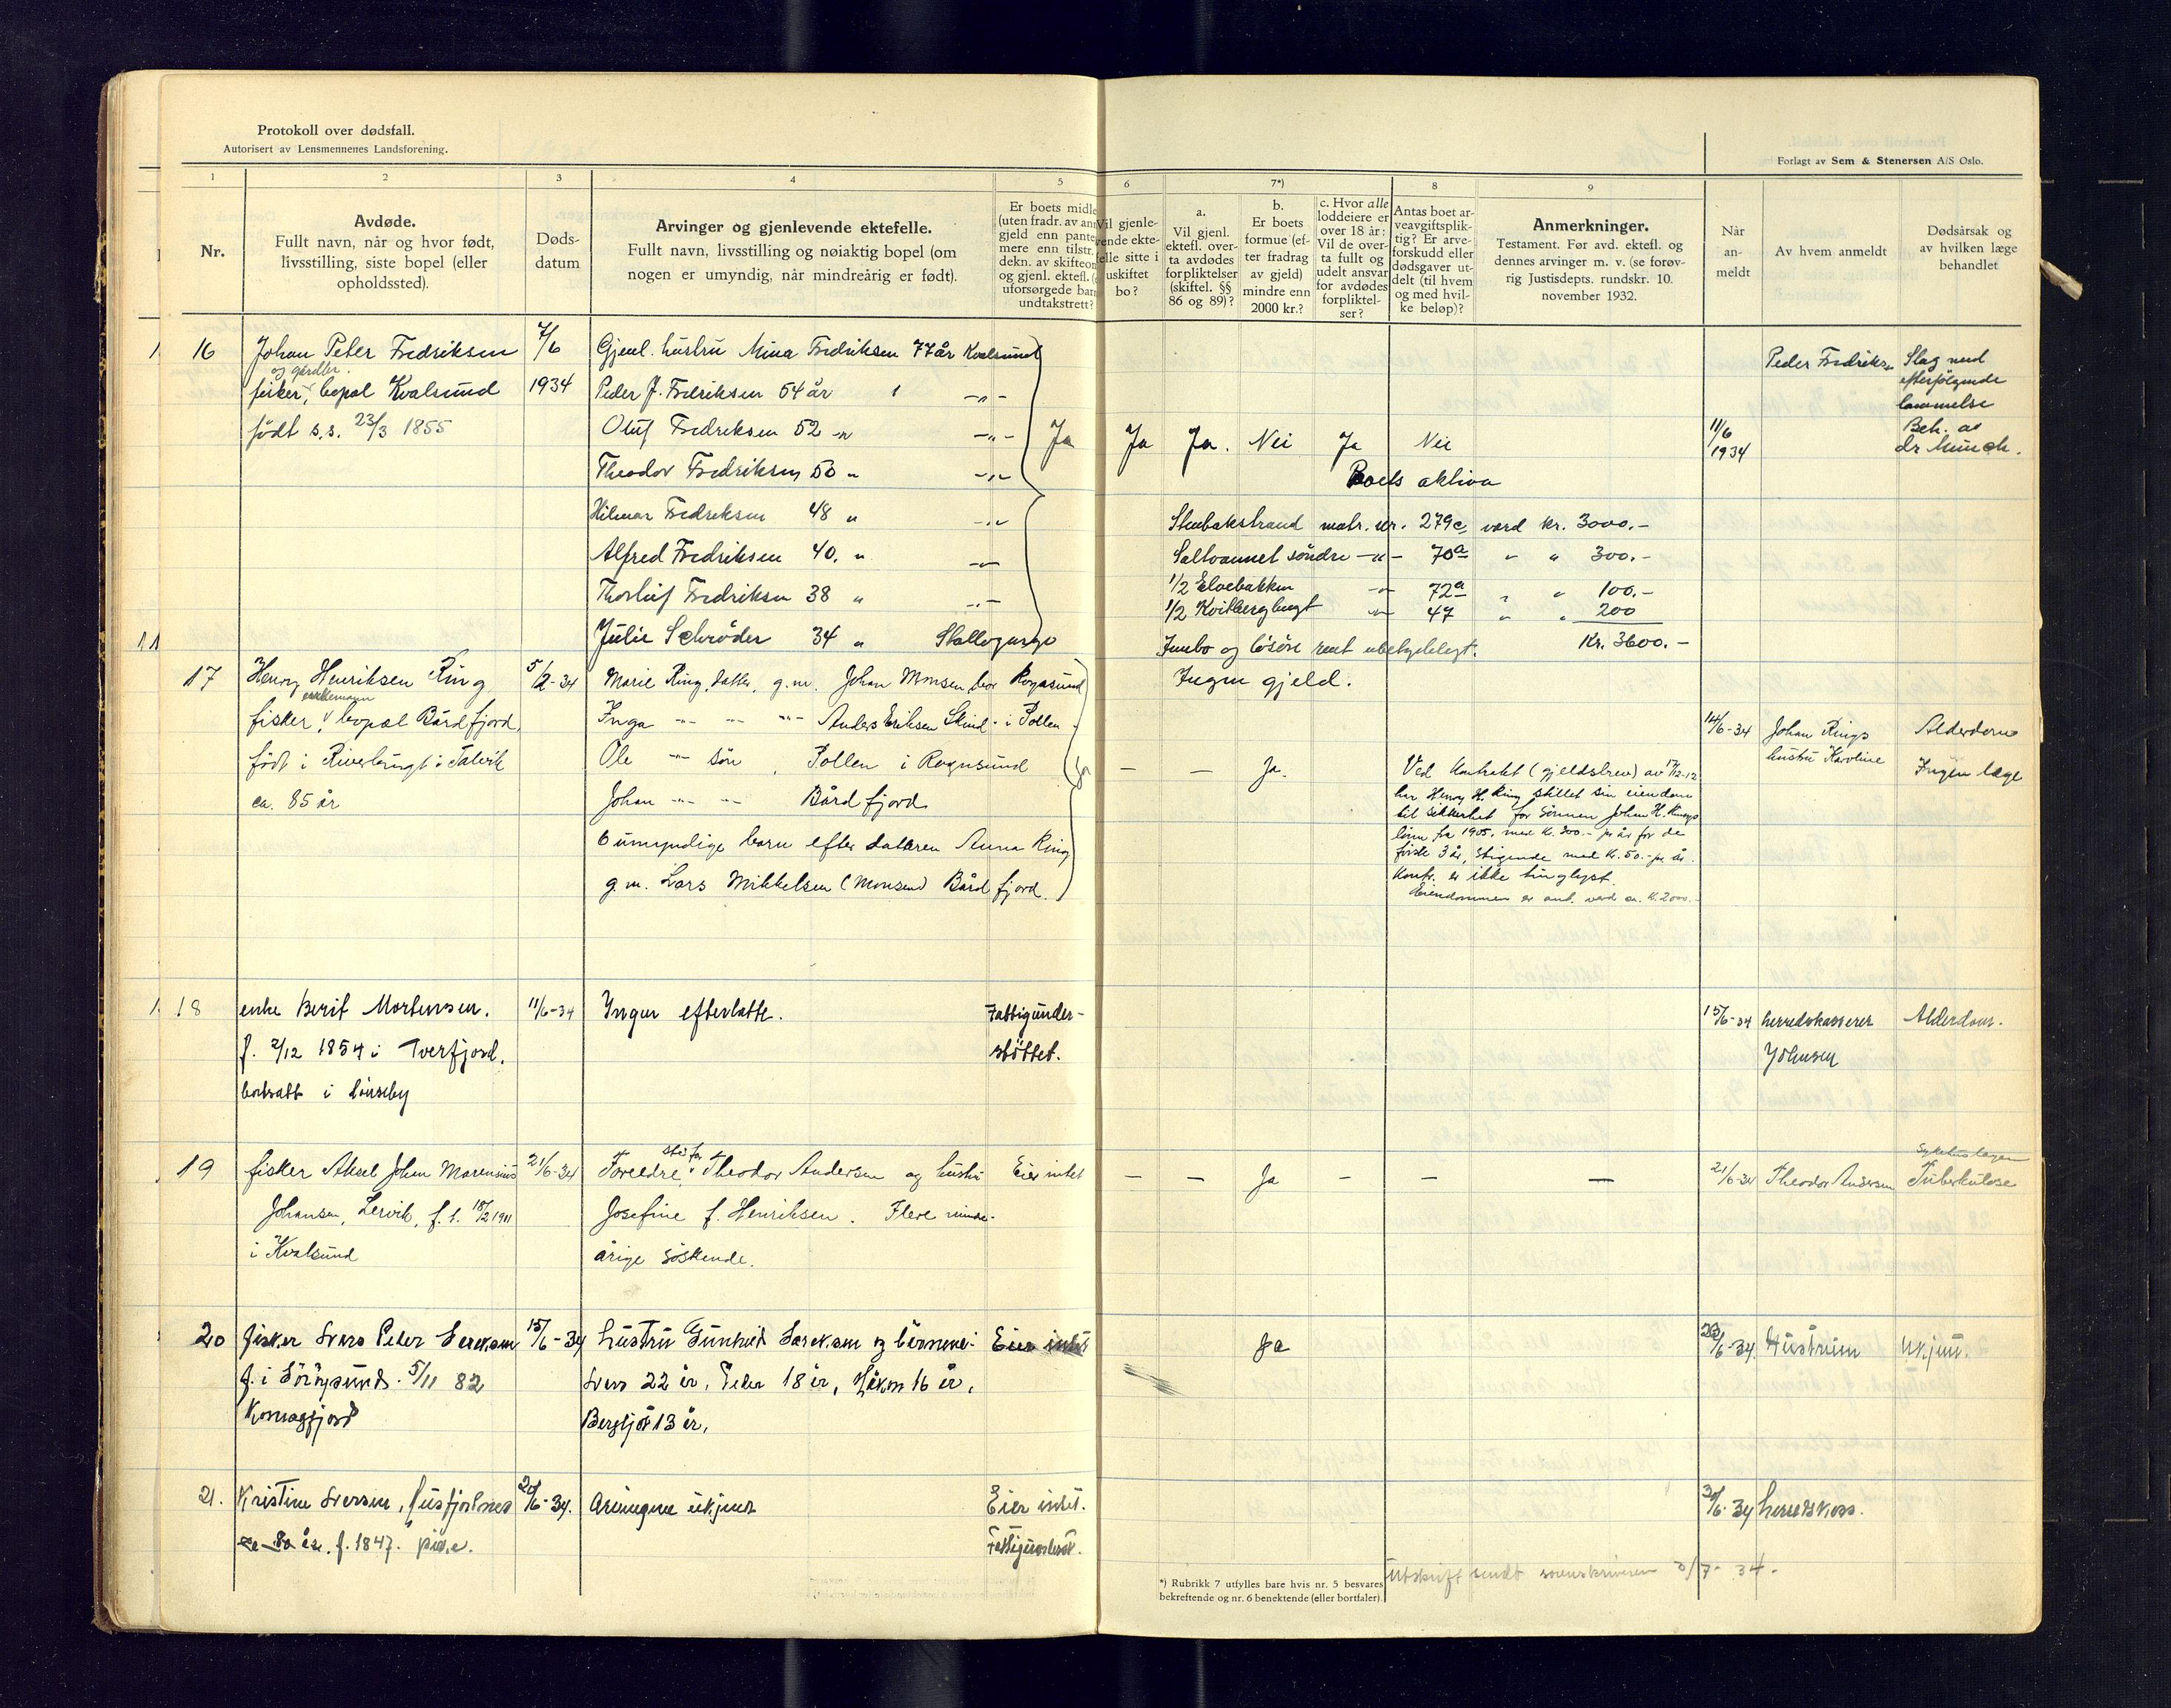 Protokoll over dødsfall.
Autorisert av Lensmennenes Landsforening.
Forlagt av Sem & Stenersen A/S Oslo.
1 2 3 4 5 6 7*) 8 9
Nr.
Avdøde.
Fullt navn, når og hvor født,
livsstilling, siste bopel (eller
opholdssted).
Døds-
datum
Arvinger og gjenlevende ektefelle.
Fullt navn, livsstilling og nøiaktig bopel (om
nogen er umyndig, når mindreårig er født).
Er boets midle
(uten fradr. av ann
gjeld enn pante
mere enn tilstr.
dekn. av skifteom
og gjenl. ektefl. (
uforsørgede bar
undtakstrett?
Vil gjenle-
vende ekte-
felle sitte i
uskiftet
bo?
a.
Vil gjenl.
ektefl. over-
ta avdødes
forpliktelser
(skiftel. §§
86 og 89)?
b.
Er boets
formue (ef-
ter fradrag
av gjeld)
mindre enn
2000 kr.?
c. Hvor alle
loddeiere er
over 18 år:
Vil de over-
ta fullt og
udelt ansvar
for avdødes
forpliktel-
ser?
Antas boet ar-
veavgiftsplik-
tig? Er arve-
forskudd eller
dødsgaver ut-
delt (til hvem
og med hvil-
ke beløp)?
Anmerkninger.
Testament. Før avd. ektefl. og
dennes arvinger m. v. (se forøv-
rig Justisdepts. rundskr. 10.
november 1932.
Når
an-
meldt
Av hvem anmeldt
Dødsårsak og
av hvilken læge
behandlet
16 Johan Peter Fredriksen
og gårdbr.
fisker, bopæl Kvalsund
født s.s. 23/3 1855
7/6
1934
Gjenl. hustru Mina Fredriksen 77 år Kvalsund
Peder J. Fredriksen 54 år -"-
Oluf Fredriksen 52 " -"-
Theodor Fredriksen 50 " -"-
Hilmar Fredriksen 48 " -"-
Alfred Fredriksen 40. " -"-
Thorleif Fredriksen 38 " -"-
Julie Schrøder 34 "
Ja Ja Ja. Nei Ja Nei
Boets aktiva
matr. nr. 279c verd kr. 3000.-
Saltvannet søndre -"- 70a " " 300.-
1/2 Elvebakken -"- 72a " " 100.-
1/2 -"- 47 " " 200
Kr. 3600.-
Innbo og løsøre rent ubetydeligt.
Ingen gjeld.
11/6
1934
Peder Fredriksen
Slag med
efterfølgende
lammelse
Beh. av
dr Munch.
17 Henry Henriksen Ring
enkemann
fisker, bopæl Bårdfjord,
født i i Talvik
ca. 85 år
5/2-34
Marie Ring, datter, g.m. Johan Monsen, bor Rognsund
Inga -"- -"- -"- Anders Eriksen i Pollen
Ole -"- søn, Pollen i Rognsund
Johan -"- -"- Bårdfjord
6 umyndige barn efter datteren Anna Ring
g.m. Lars Mikkelsen (Monsen) Bårdfjord.
— — Ja.
Ved Kontrakt (gjeldsbrev) av 17/12-12
har Henry H. Ring stillet sin eiendom
til sikkerhet for sønnen Johan H. Rings
lønn fra 1905. med kr. 300.- pr år for de
første 3 år, stigende med kr. 50.- pr år.
Kontr. er ikke tinglyst.
Eiendommen er ant. verd ca. k. 2000.-
14/6-34
Johan Rings
hustru Karoline
Alderdom
Ingen læge
18 enke Berit Mortensen.
f. 2/12 1854 i Tverfjord.
bortsatt i
11/6-34
Ingen efterlatte.
Fattigunder-
støttet.
15/6-34 herredskasserer
Johnsen
Alderdom.
19 fisker Aksel Johan Marensius
Johansen, Lervik, f. 15/2 1911
i Kvalsund
21/6-34
stiffar
Foreldre: Theodor Andersen og hustru
Josefine f. Henriksen. Flere minde-
årige søskende.
Eier intet
— — Ja - - —
21/6-34 Theodor Andersen
Sykehuslægen
Tuberkulose
20 fisker Sivers Peder
f. i Sörøysund. 5/11 82
Komagfjord
15/6-34
hustru Gunhild og börnene:
Sivers 22 år, Peder 18 år, Håkon 16 år,
Bergljot 13 år,
Eier intet
Ja
23/6-34 Hustruen ukjent.
21. Kristine Iversen,
ca 80 år. f. 1847. pike.
20/6-34.
Arvingene ukjent
Eier intet.
Fattigunderst.
30/6-34 herredskass.
*) Rubrikk 7 utfylles bare hvis nr. 5 besvares
bekreftende og nr. 6 benektende (eller bortfaler).
Utskrift sendt sorenskriveren 3/7-34.